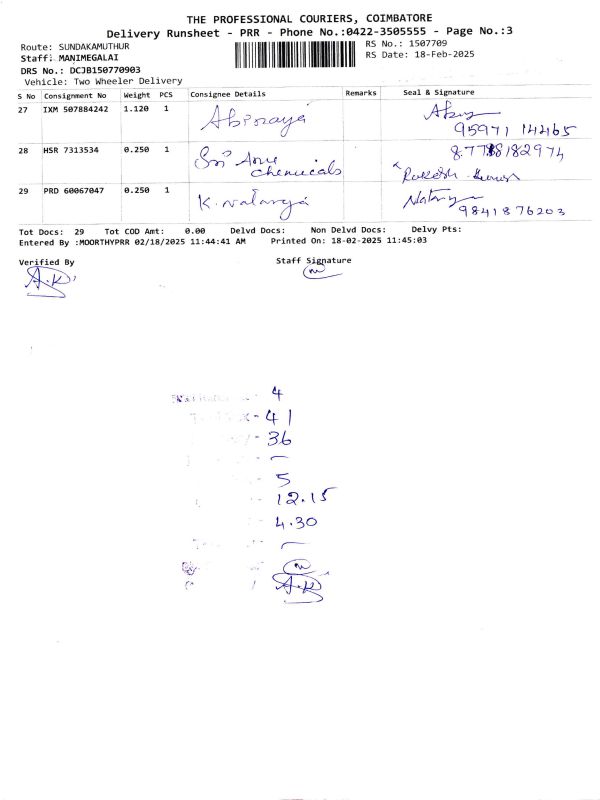 THE PROFESSIONAL COURIERS, COIMBATORE
Delivery Runsheet - PRR - Phone No.:0422-3505555 - Page No.:3
Route: SUNDAKAMUTHUR RS No.: 1507709
Staff: MANIMEGALAI RS Date: 18-Feb-2025
DRS No.: DCJB150770903
Vehicle: Two Wheeler Delivery
S No Consignment No Weight PCS Consignee Details Remarks Seal & Signature
27 IXM 507884242 1.120 1 Abinaya
95971 14465
28 HSR 7313534 0.250 1 Sri Arul chemicals 8778182974
Rakesh Kumar
29 PRD 60067047 0.250 1 K. Nataraja
9841876203
Tot Docs: 29 Tot COD Amt: 0.00 Delvd Docs: Non Delvd Docs: Delvy Pts:
Entered By :MOORTHYPRR 02/18/2025 11:44:41 AM Printed On: 18-02-2025 11:45:03
Verified By Staff Signature
A.K
4
41
36
5
12.15
4.30
A.K